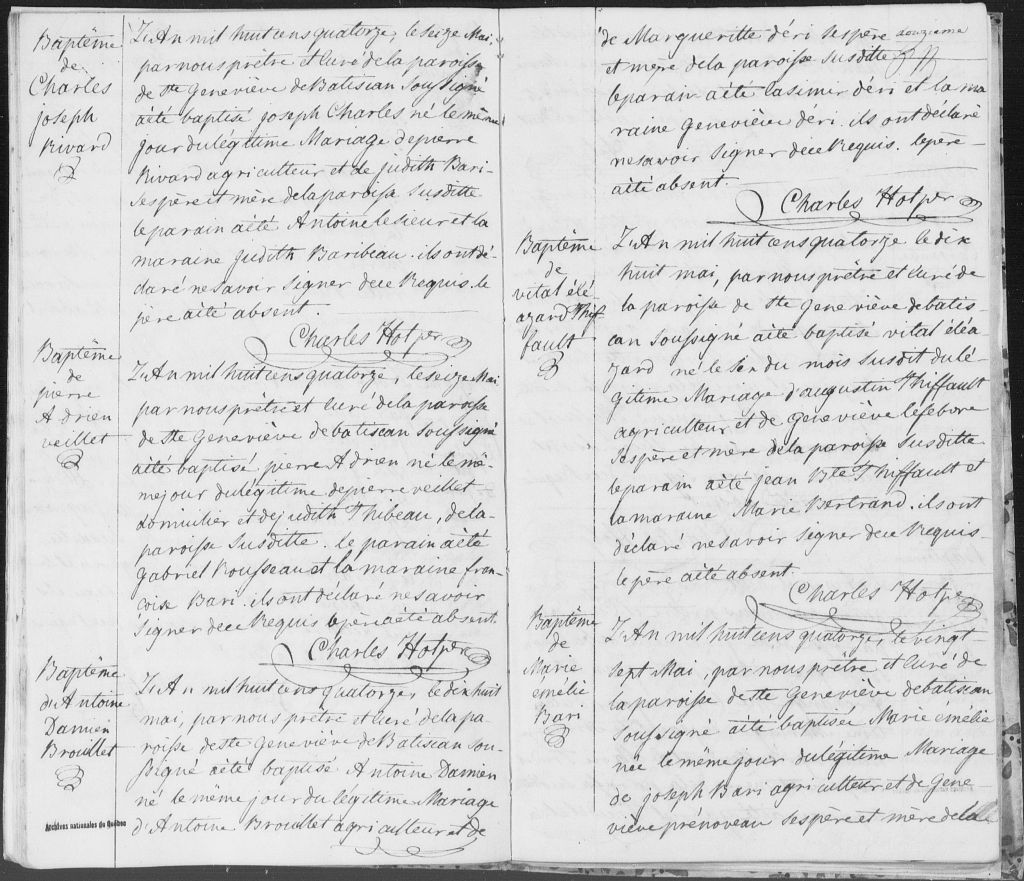 Baptême
de
Charles
joseph
Rivard
L'An mil huit cens quatorze, le seize Mai,
par nous prêtre et Curé de la paroisse
de Ste Geneviève de Batiscan Soussigné
a été baptisé joseph Charles né le même
jour du légitime Mariage de pierre
Rivard agriculteur et de judith Bari-
ses père et mère de la paroisse susditte
le parain a été Antoine lesieur et la
maraine judith Baribeau. ils ont dé-
claré ne savoir signer de ce Requis. le
père a été absent.
Charles Hotper
Baptême
de
pierre
Adrien
veillet
L'An mil huit cens quatorze, le seize Mai
par nous prêtre et Curé de la paroisse
de Ste Geneviève de batiscan Soussigné
a été baptisé pierre Adrien né le mê-
me jour du légitime de pierre veillet
et de judith Thibeau, de la
paroisse Susditte. le parain a été
gabriel Rousseau et la maraine fran-
coise Bari. ils ont déclaré ne savoir
signer de ce Requis le père a été absent.
Charles Hotper
Baptême
du Antoine
Damien
Broullet
L'An mil huit cens quatorze, le dix huit
mai, par nous prêtre et Curé de la pa-
roisse de Ste Geneviève de Batiscan Sou-
ssigné a été baptisé Antoine Damien
né le même jour du légitime Mariage
d'Antoine Broullet agriculteur et de
Archives nationales du Québec
de Margueritte déri ses père
et mère de la paroisse Susditte
le parain a été Casimir déri et la ma
raine Geneviève déri. ils ont déclaré
ne savoir signer de ce Requis. le père
a été absent.
Charles Hotper
Baptême
de
vital élé-
azard Thif
fault
L'An mil huit cens quatorze le dix
huit mai, par nous prêtre et Curé de
la paroisse de Ste Geneviève de batis-
can Soussigné a été baptisé vital éléa
zard né le du mois susdit du lé-
gitime Mariage d'augustin Thiffault
agriculteur et de Geneviève lefebvre
ses père et mère de la paroisse Susditte
le parain a été jean Bte Thiffault et
la maraine Marie Bertrand. ils ont
déclaré ne savoir signer de ce Requis-
le père a été absent
Charles Hotper
Baptême
de
Marie
émélie
Bari
L'An mil huit cens quatorze, le vingt
sept Mai, par nous prêtre et Curé de
la paroisse de Ste Geneviève de Batiscan
Soussigné a été baptisée Marie émélie
née le même jour du légitime Mariage
de joseph Bari agriculteur et de Gene-
viève prénoveau ses père et mère de la